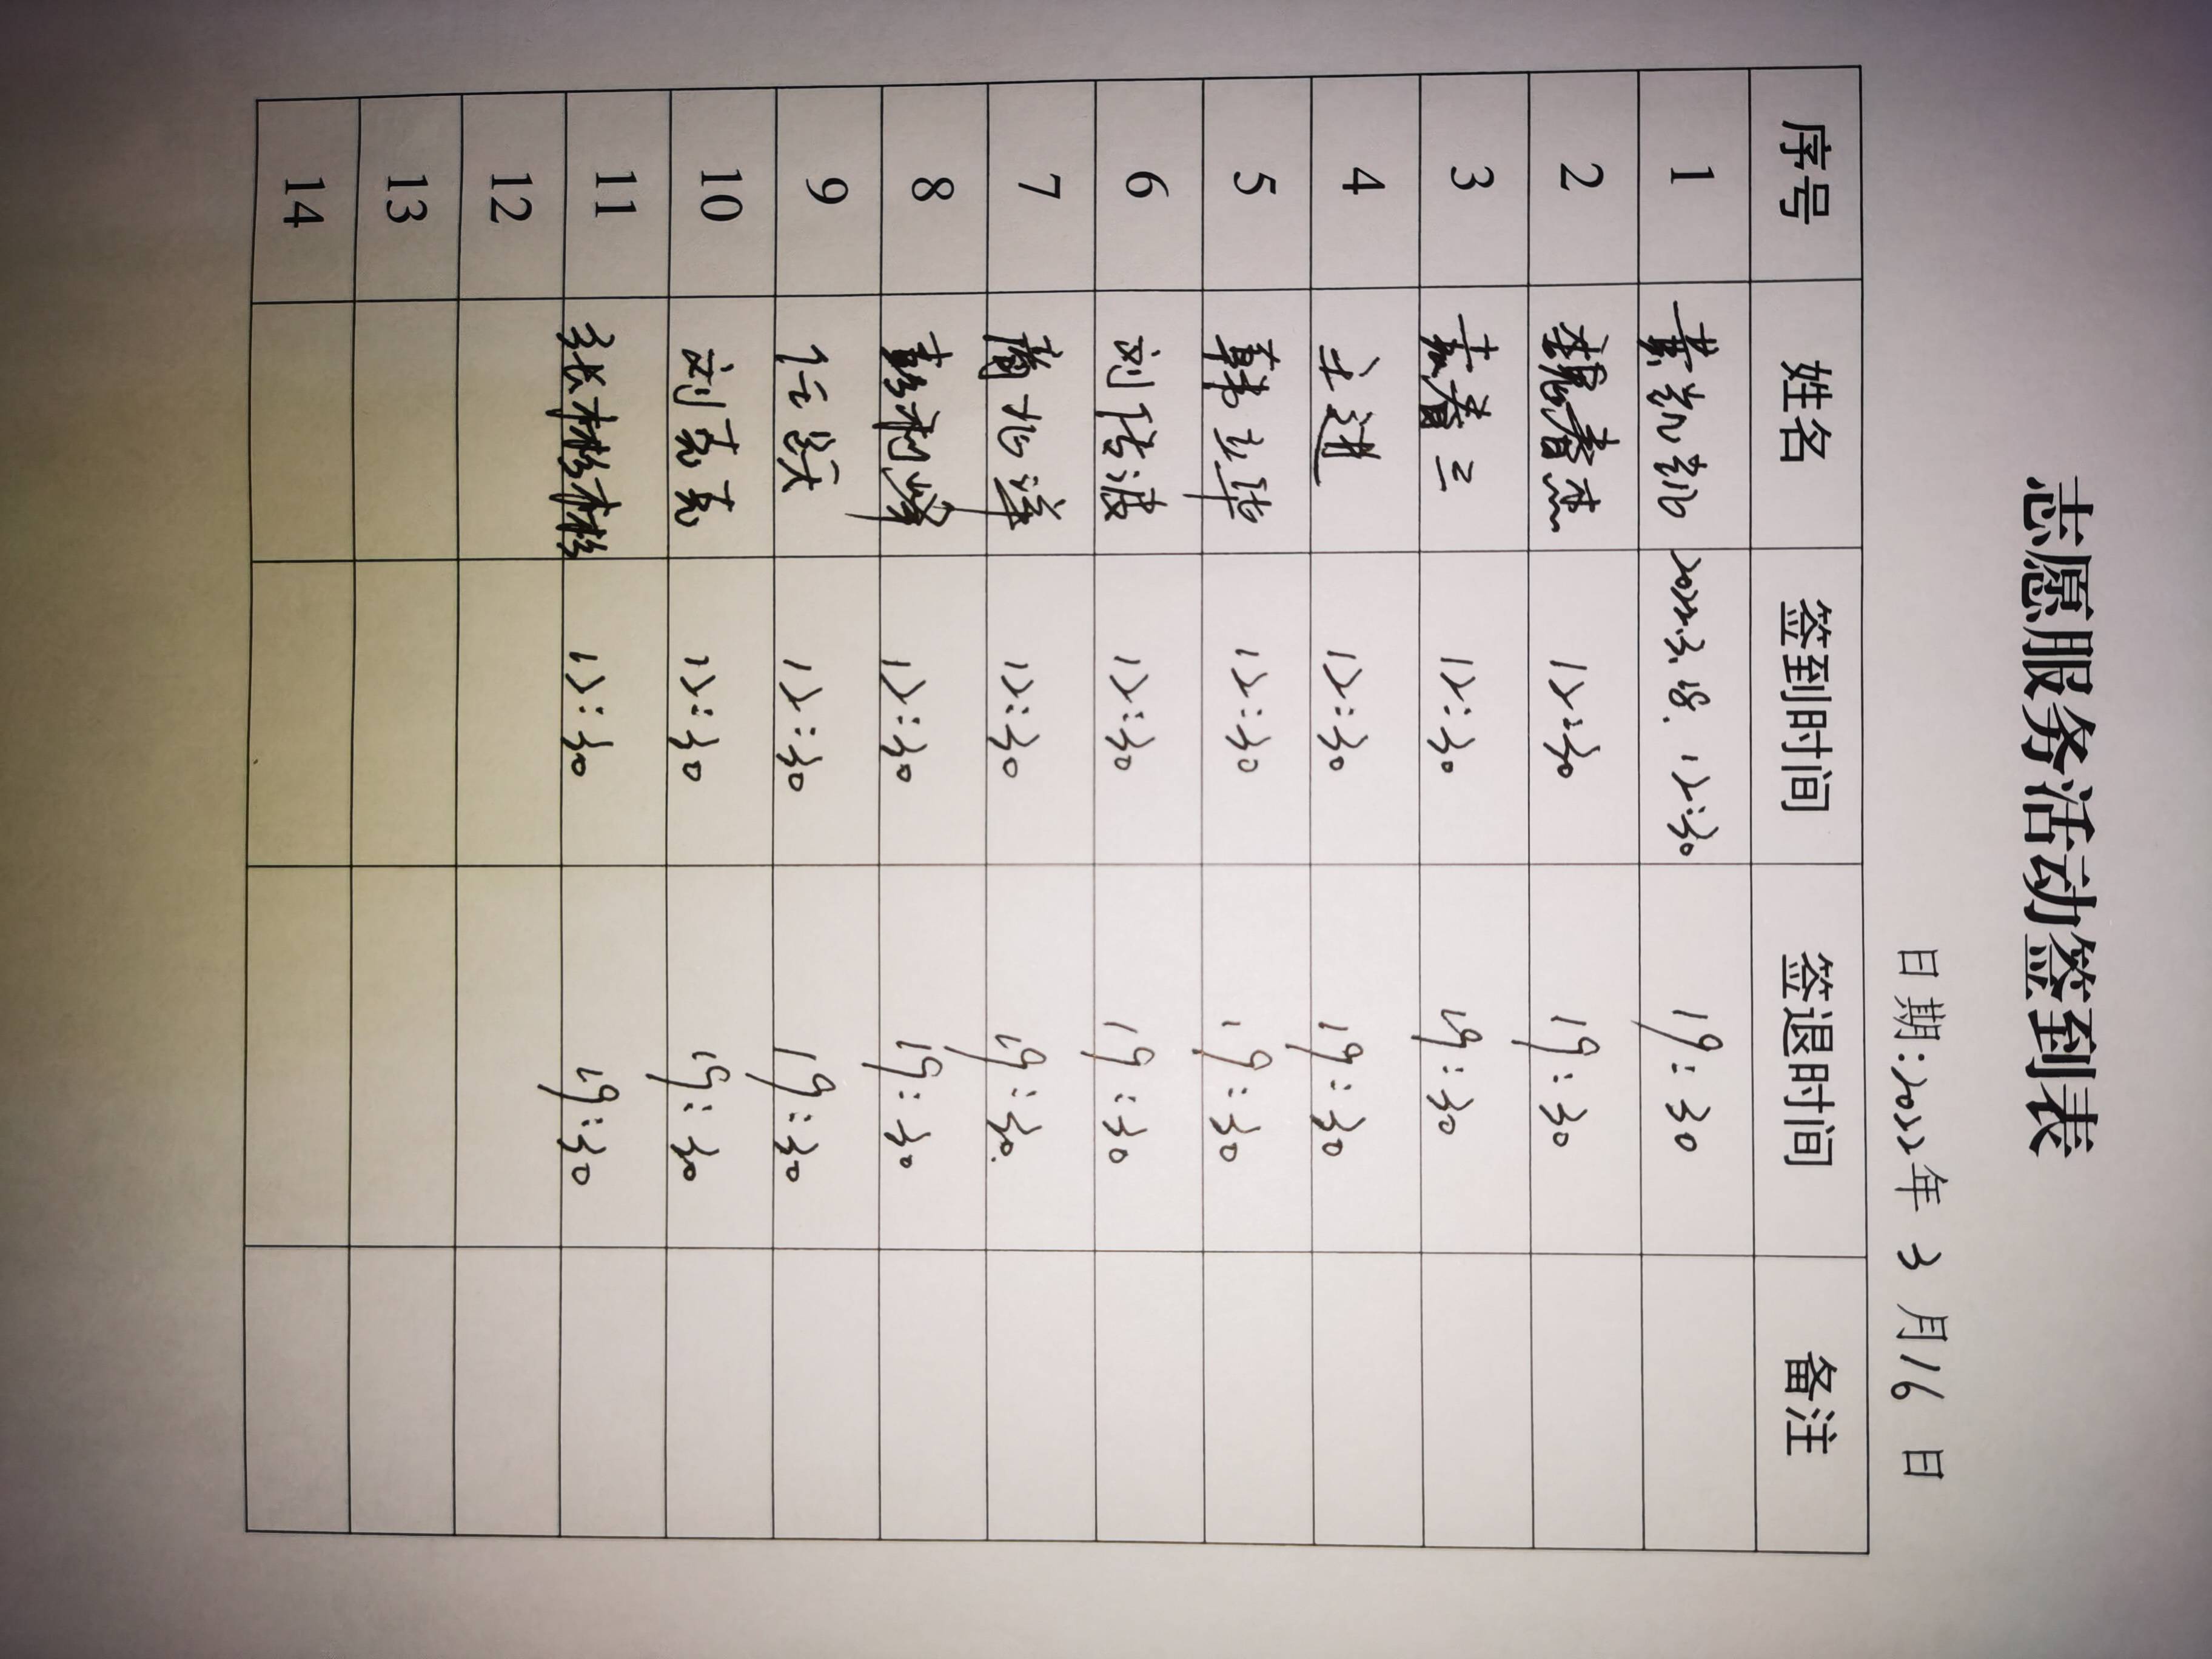 志愿服务活动签到表
日期:2022年 3 月16 日
序号 姓名 签到时间 签退时间 备注
1 黄凯凯 2022.3.18. 12:30 19:30
2 春杰 12:30 19:30
3 春兰 12:30 19:30
4 进 12:30 19:30
5 韩 12:30 19:30
6 刘传波 12:30 19:30
7 洋 12:30 19:30.
8 彭利峰 12:30 19:30
9 任 12:30 19:30
10 刘克克 12:30 19:30
11 张彬彬 12:30 19:30
12
13
14